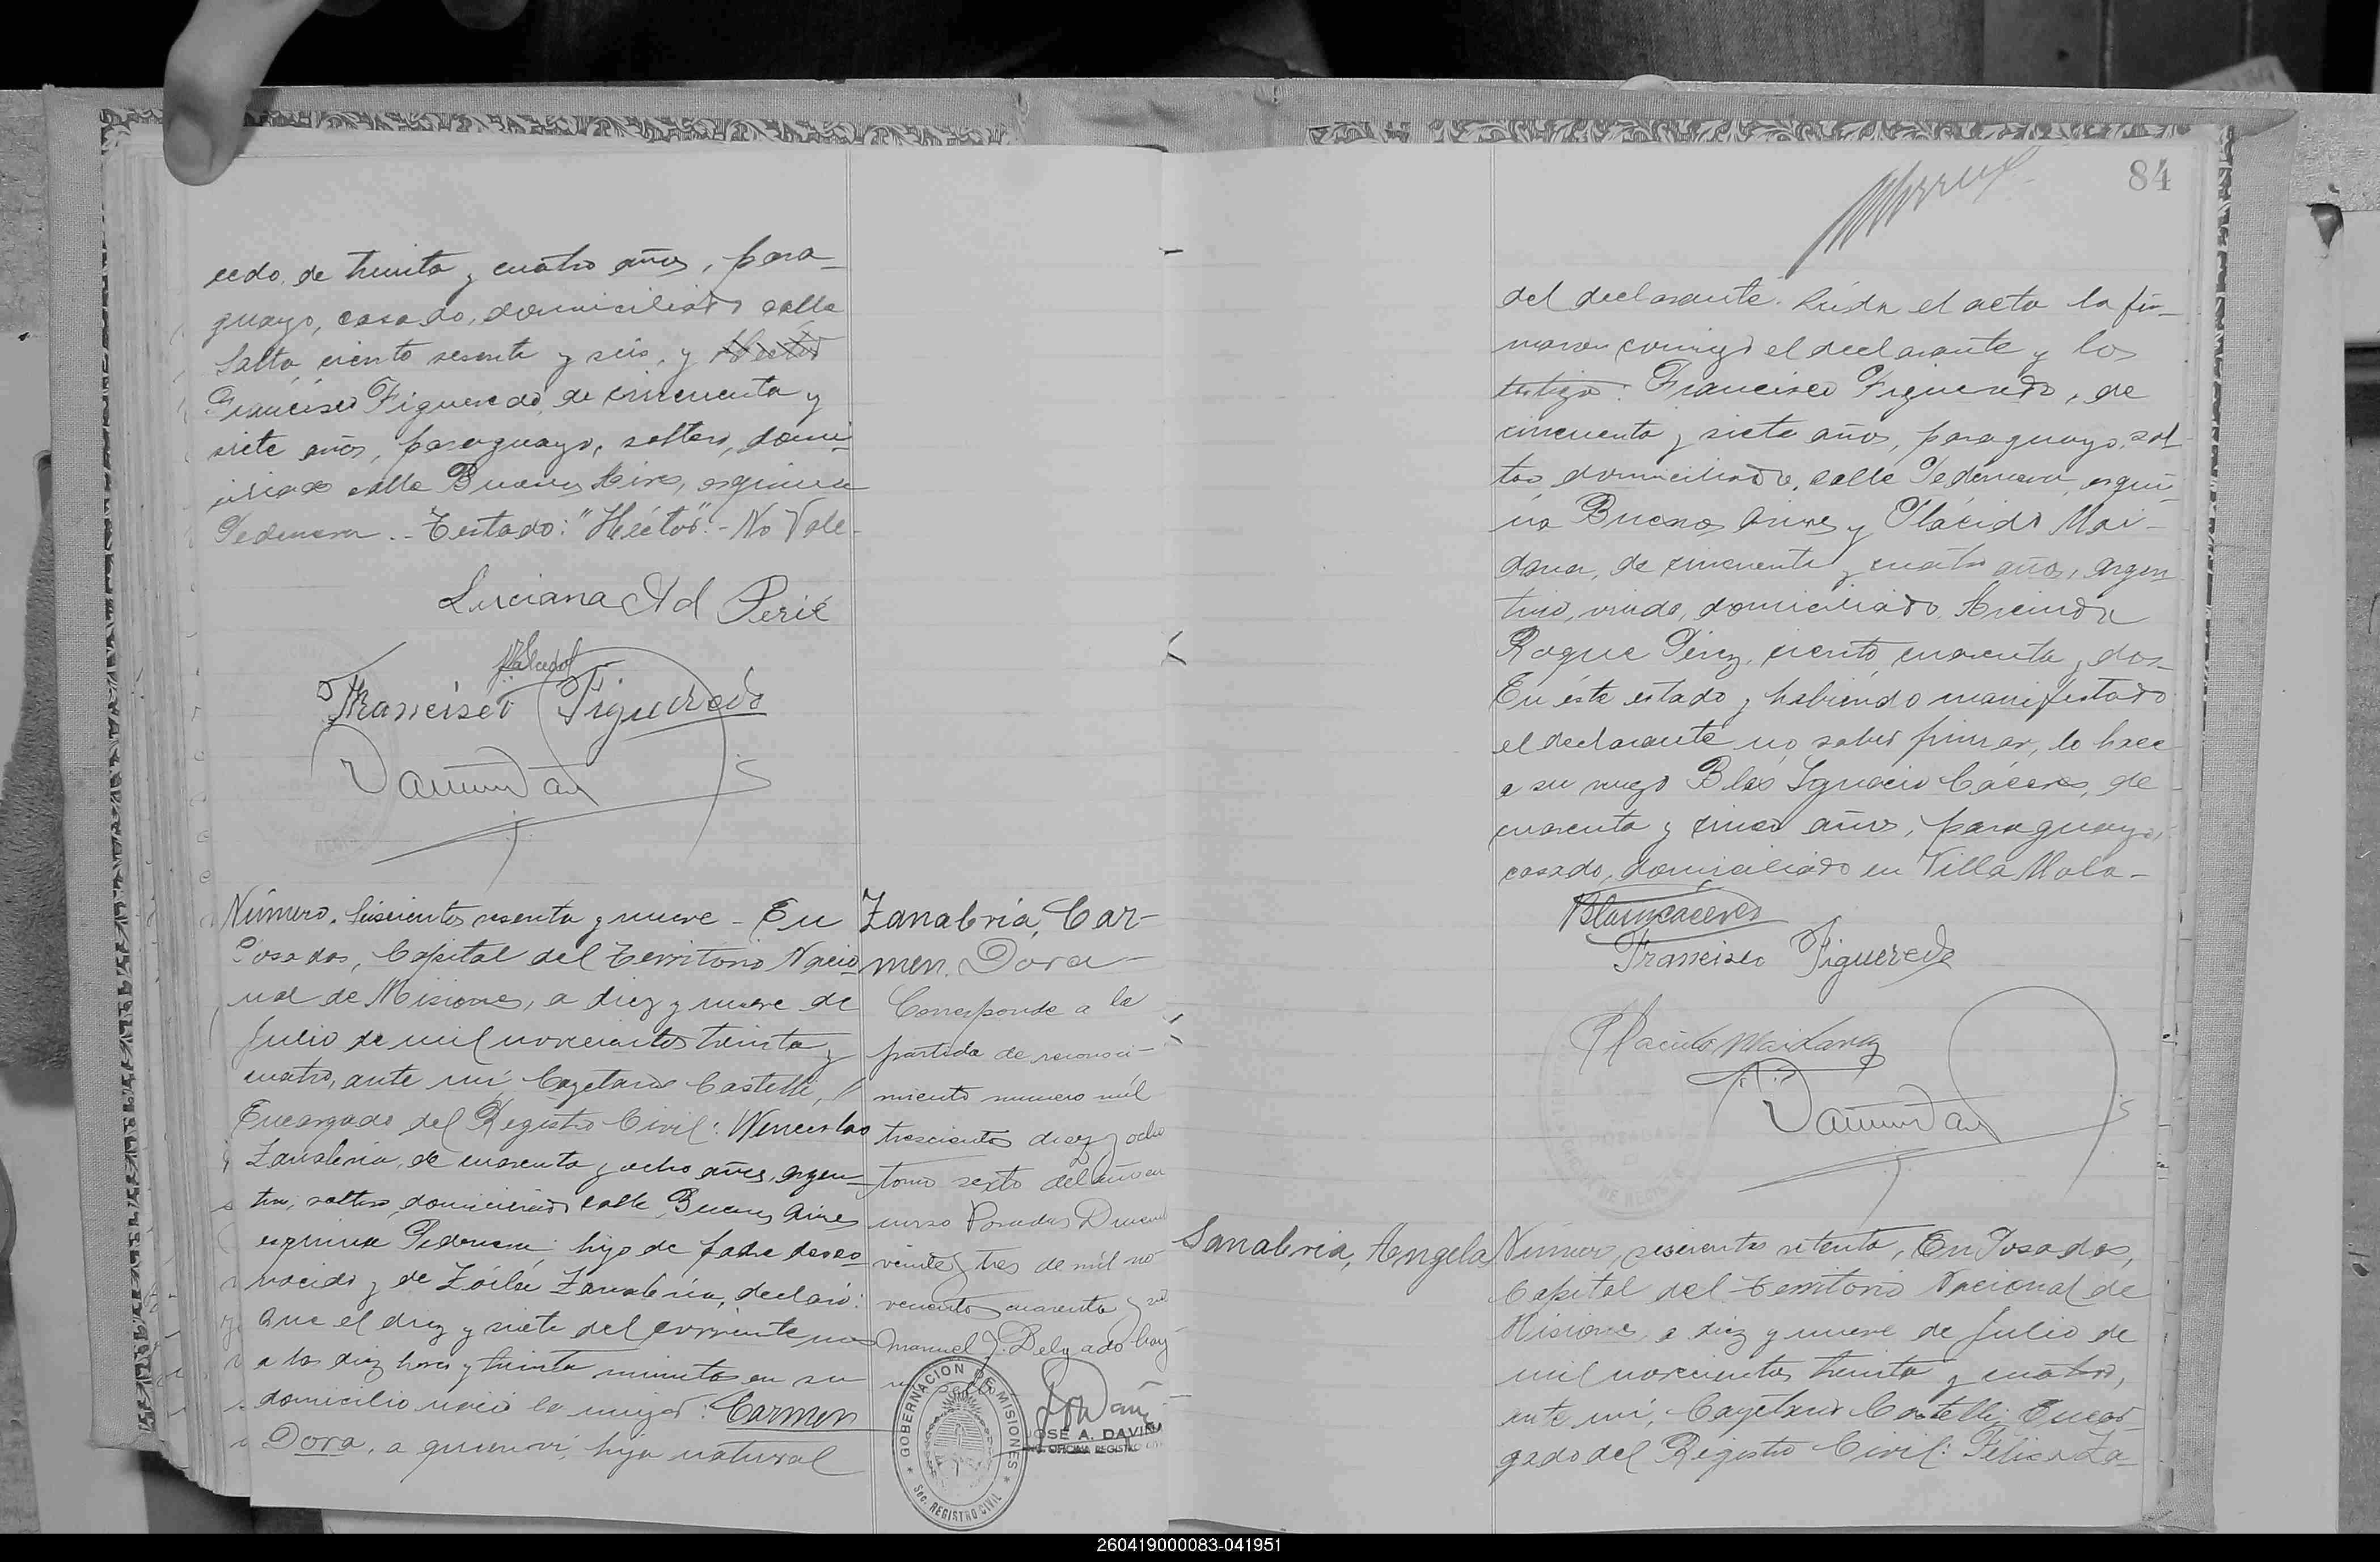 cedo, de treinta y cuatro años, para-
guayo, casado, domiciliado calle
Salta, ciento sesenta y seis, y Héctor
Francisco Figueredo, de cincuenta y
siete años, paraguayo, soltero, domi-
ciliado calle Buenos Aires, esquina
Pedernera.- Testado: "Héctor".- No Vale-
Luciana Ad Perié
Francisco Figueredo
Número. Seiscientos sesenta y nueve - En
Posadas, Capital del Territorio Nacio-
nal de Misiones, a diez y nueve de
Julio de mil novecientos treinta y
cuatro, ante mí Cayetano Castelli,
Encargado del Registro Civil: Wenceslao
Zanabria, de cuarenta y ocho años, argen-
tino, soltero, domiciliado calle Buenos Aires
esquina Pedernera: hijo de padre desco-
nocido y de Zoila Zanabria, declaró:
Que el diez y siete del corriente mes
a las diez horas y treinta minutos en su
domicilio nació la mujer: Carmen
Dora, a quien vi, hija natural
Zanabria, Car-
men Dora-
Corresponde a la
partida de reconoci-
miento numero mil
trescientos diez y ocho
tomo sexto del año en
curso Posadas
veinte y tres de mil no-
vecientos cuarenta y
Manuel J. Delgado hay
un sello
GOBERNACION DE MISIONES
SEC. REGISTRO CIVIL
JOSE A. DAVIÑA
OFICINA REGISTRO
84
del declarante. Leída el acta la fir-
maron conmigo el declarante y los
testigos: Francisco Figueredo, de
cincuenta y siete años, paraguayo, sol-
tero, domiciliado, calle Pedernera, esqui-
na Buenos Aires y Plácido Mai-
dana, de cincuenta y cuatro años, argen-
tino, viudo, domiciliado Avenida
Roque Pérez, ciento cuarenta y dos-
En éste estado y habiendo manifestado
el declarante no saber firmar, lo hace
a su ruego Blas Ignacio Cáceres, de
cuarenta y cinco años, paraguayo,
casado, domiciliado en Villa Mola-
Francisco Figueredo
Placido Maidana
Sanabria, Angela
Número, seiscientos setenta, En Posadas,
Capital del Territorio Nacional de
Misiones, a diez y nueve de Julio de
mil novecientos treinta y cuatro,
ante mí, Cayetano Castelli, Encar-
gado del Registro Civil: Felisa Za-
260419000083-041951